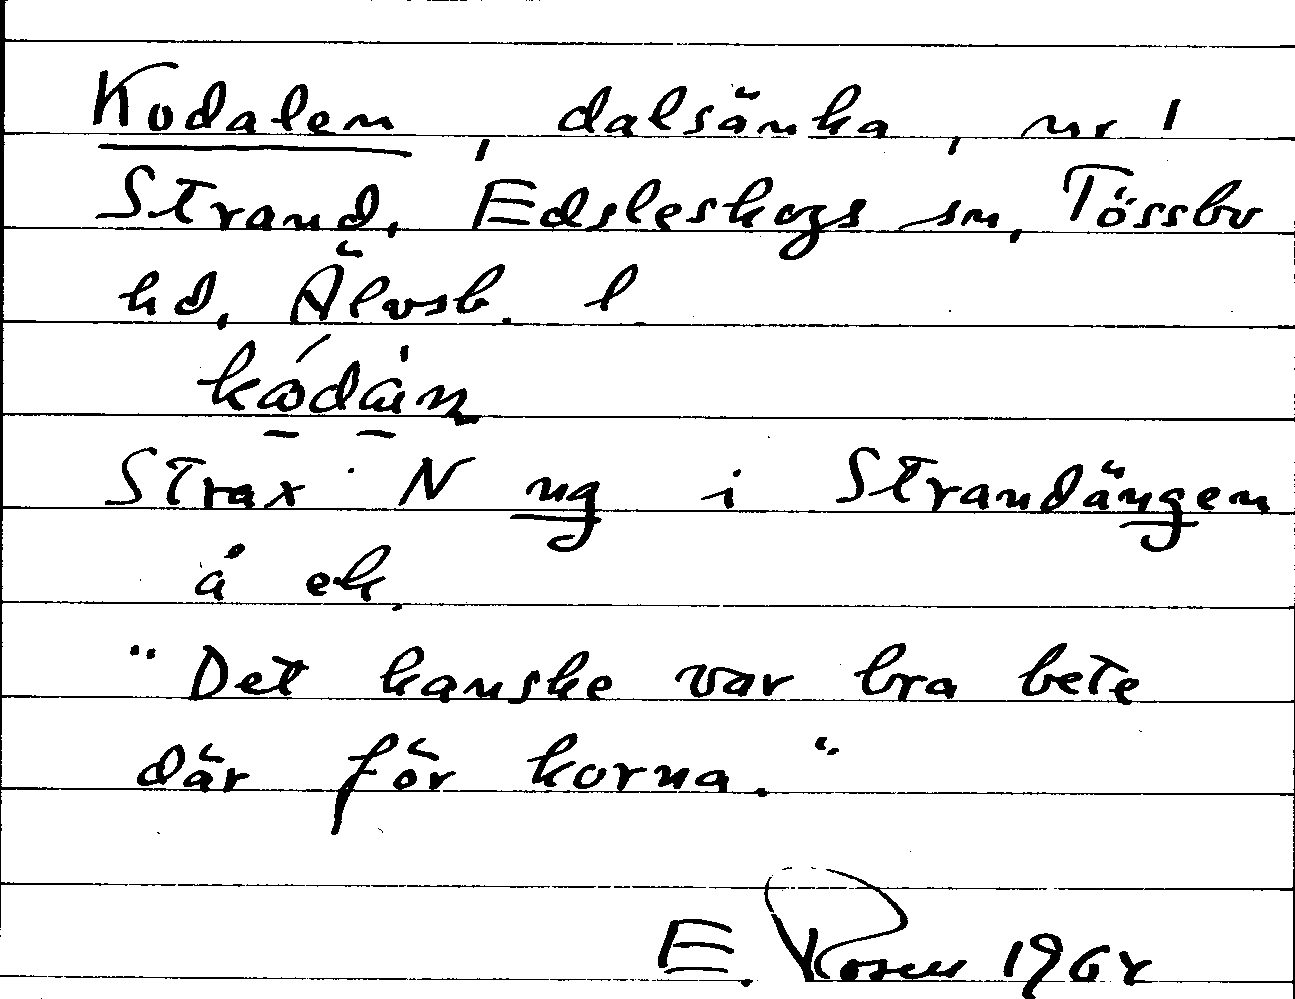 Kodalen, dalsänka, nr 1
Strand, Edsleskogs sn, Tössbo
hd, Älvsb. l
Strax N ng i Strandängen
å ek.
"Det kanske var bra bete
där för korna."
E. Rosén